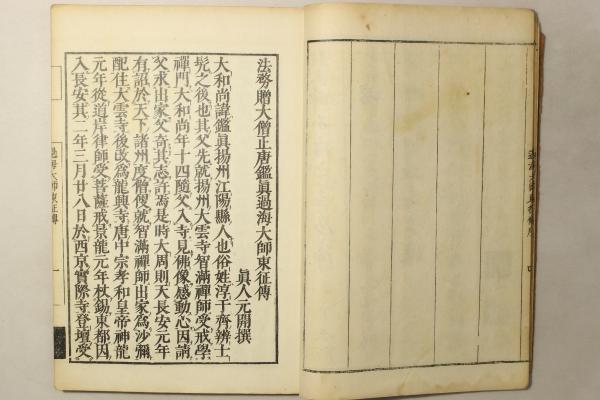 法務贈大僧正唐鑑眞過海大師東征傳
眞人元開撰
大和尚諱鑑眞揚州江陽縣人也俗姓淳于齊辨士
髡之後也其父先就揚州大雲寺智滿禪師受戒學
禪門大和尚年十四隨父入寺見佛像感動心因請
父求出家父奇其志許焉是時大周則天長安元年
有詔於天下諸州度僧便就智滿禪師出家爲沙彌
配住大雲寺後改爲龍興寺唐中宗孝和皇帝神龍
元年從道岸律師受菩薩戒景龍元年杖錫東都因
入長安其二年三月廿八日於西京實際寺登壇受
過海大師東征傳
一